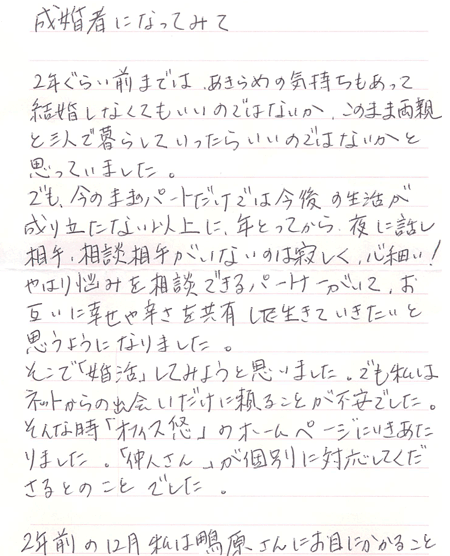 成婚者になってみて
2年ぐらい前までは、あきらめの気持ちもあって
結婚しなくてもいいのではないか、このまま両親
と三人で暮らしていったらいいのではないかと
思っていました。
でも、今のままのパートだけでは今後の生活が
成り立たない以上に、年とってから、夜に話し
相手、相談相手がいないのは寂しく、心細い!
やはり悩みを相談できるパートナーがいて、お
互いに幸せや辛さを共有した生きていきたいと
思うようになりました。
そこで「婚活」してみようと思いました。でも私は
ネットからの出会いだけに頼ることが不安でした。
そんな時「オフィス悠」のホームページにいきあた
りました。「仲人さん」が個別に対応してくだ
さるとのことでした。
2年前の12月私は鴨原さんにお目にかかること